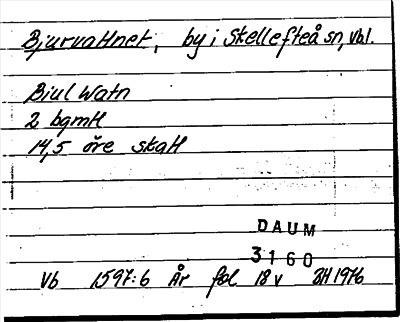 Bjurvattnet, by i Skellefteå sn, Vbl.
Biul Watn
2 bgmtl
14,5 öre skatt
DAUM
3160
Vb 1597:6 År fol 18 v BH 1976